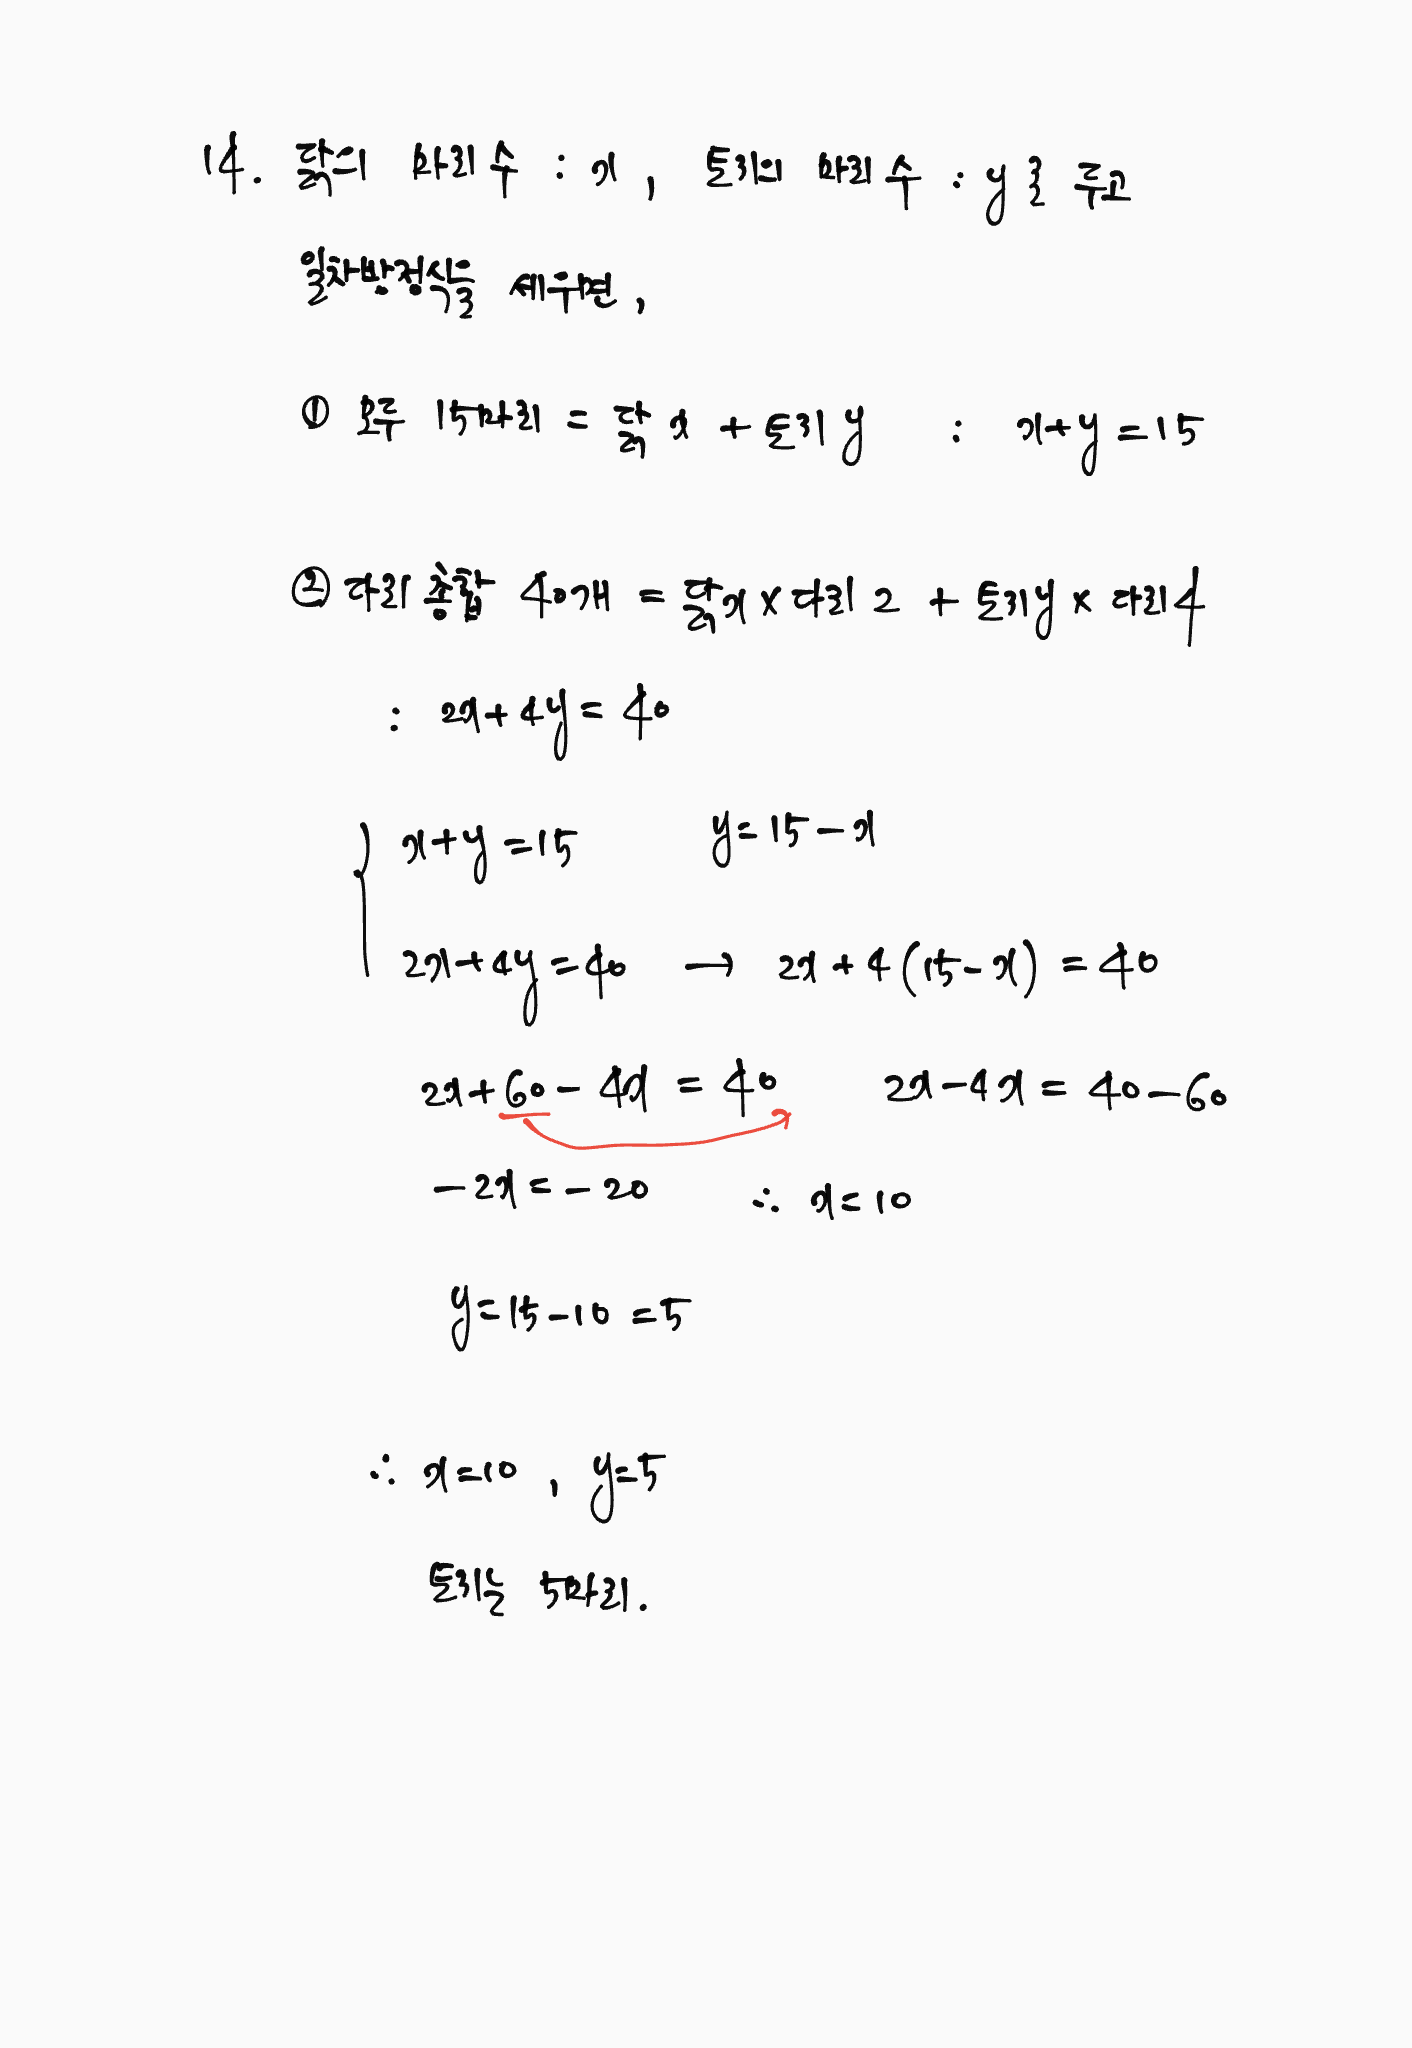 14. 닭의 마리 수 : x , 토끼의 마리 수 : y를 두고
일차방정식을 세우면,
① 모두 15마리 = 닭 x + 토끼 y : x+y=15
② 다리 총합 40개 = 닭x × 다리 2 + 토끼y × 다리 4
: 2x+4y=40
x+y=15 y=15-x
2x+4y=40 → 2x+4(15-x)=40
2x+60-4x=40 2x-4x=40-60
-2x=-20 ∴ x=10
y=15-10=5
∴ x=10 , y=5
토끼는 5마리.